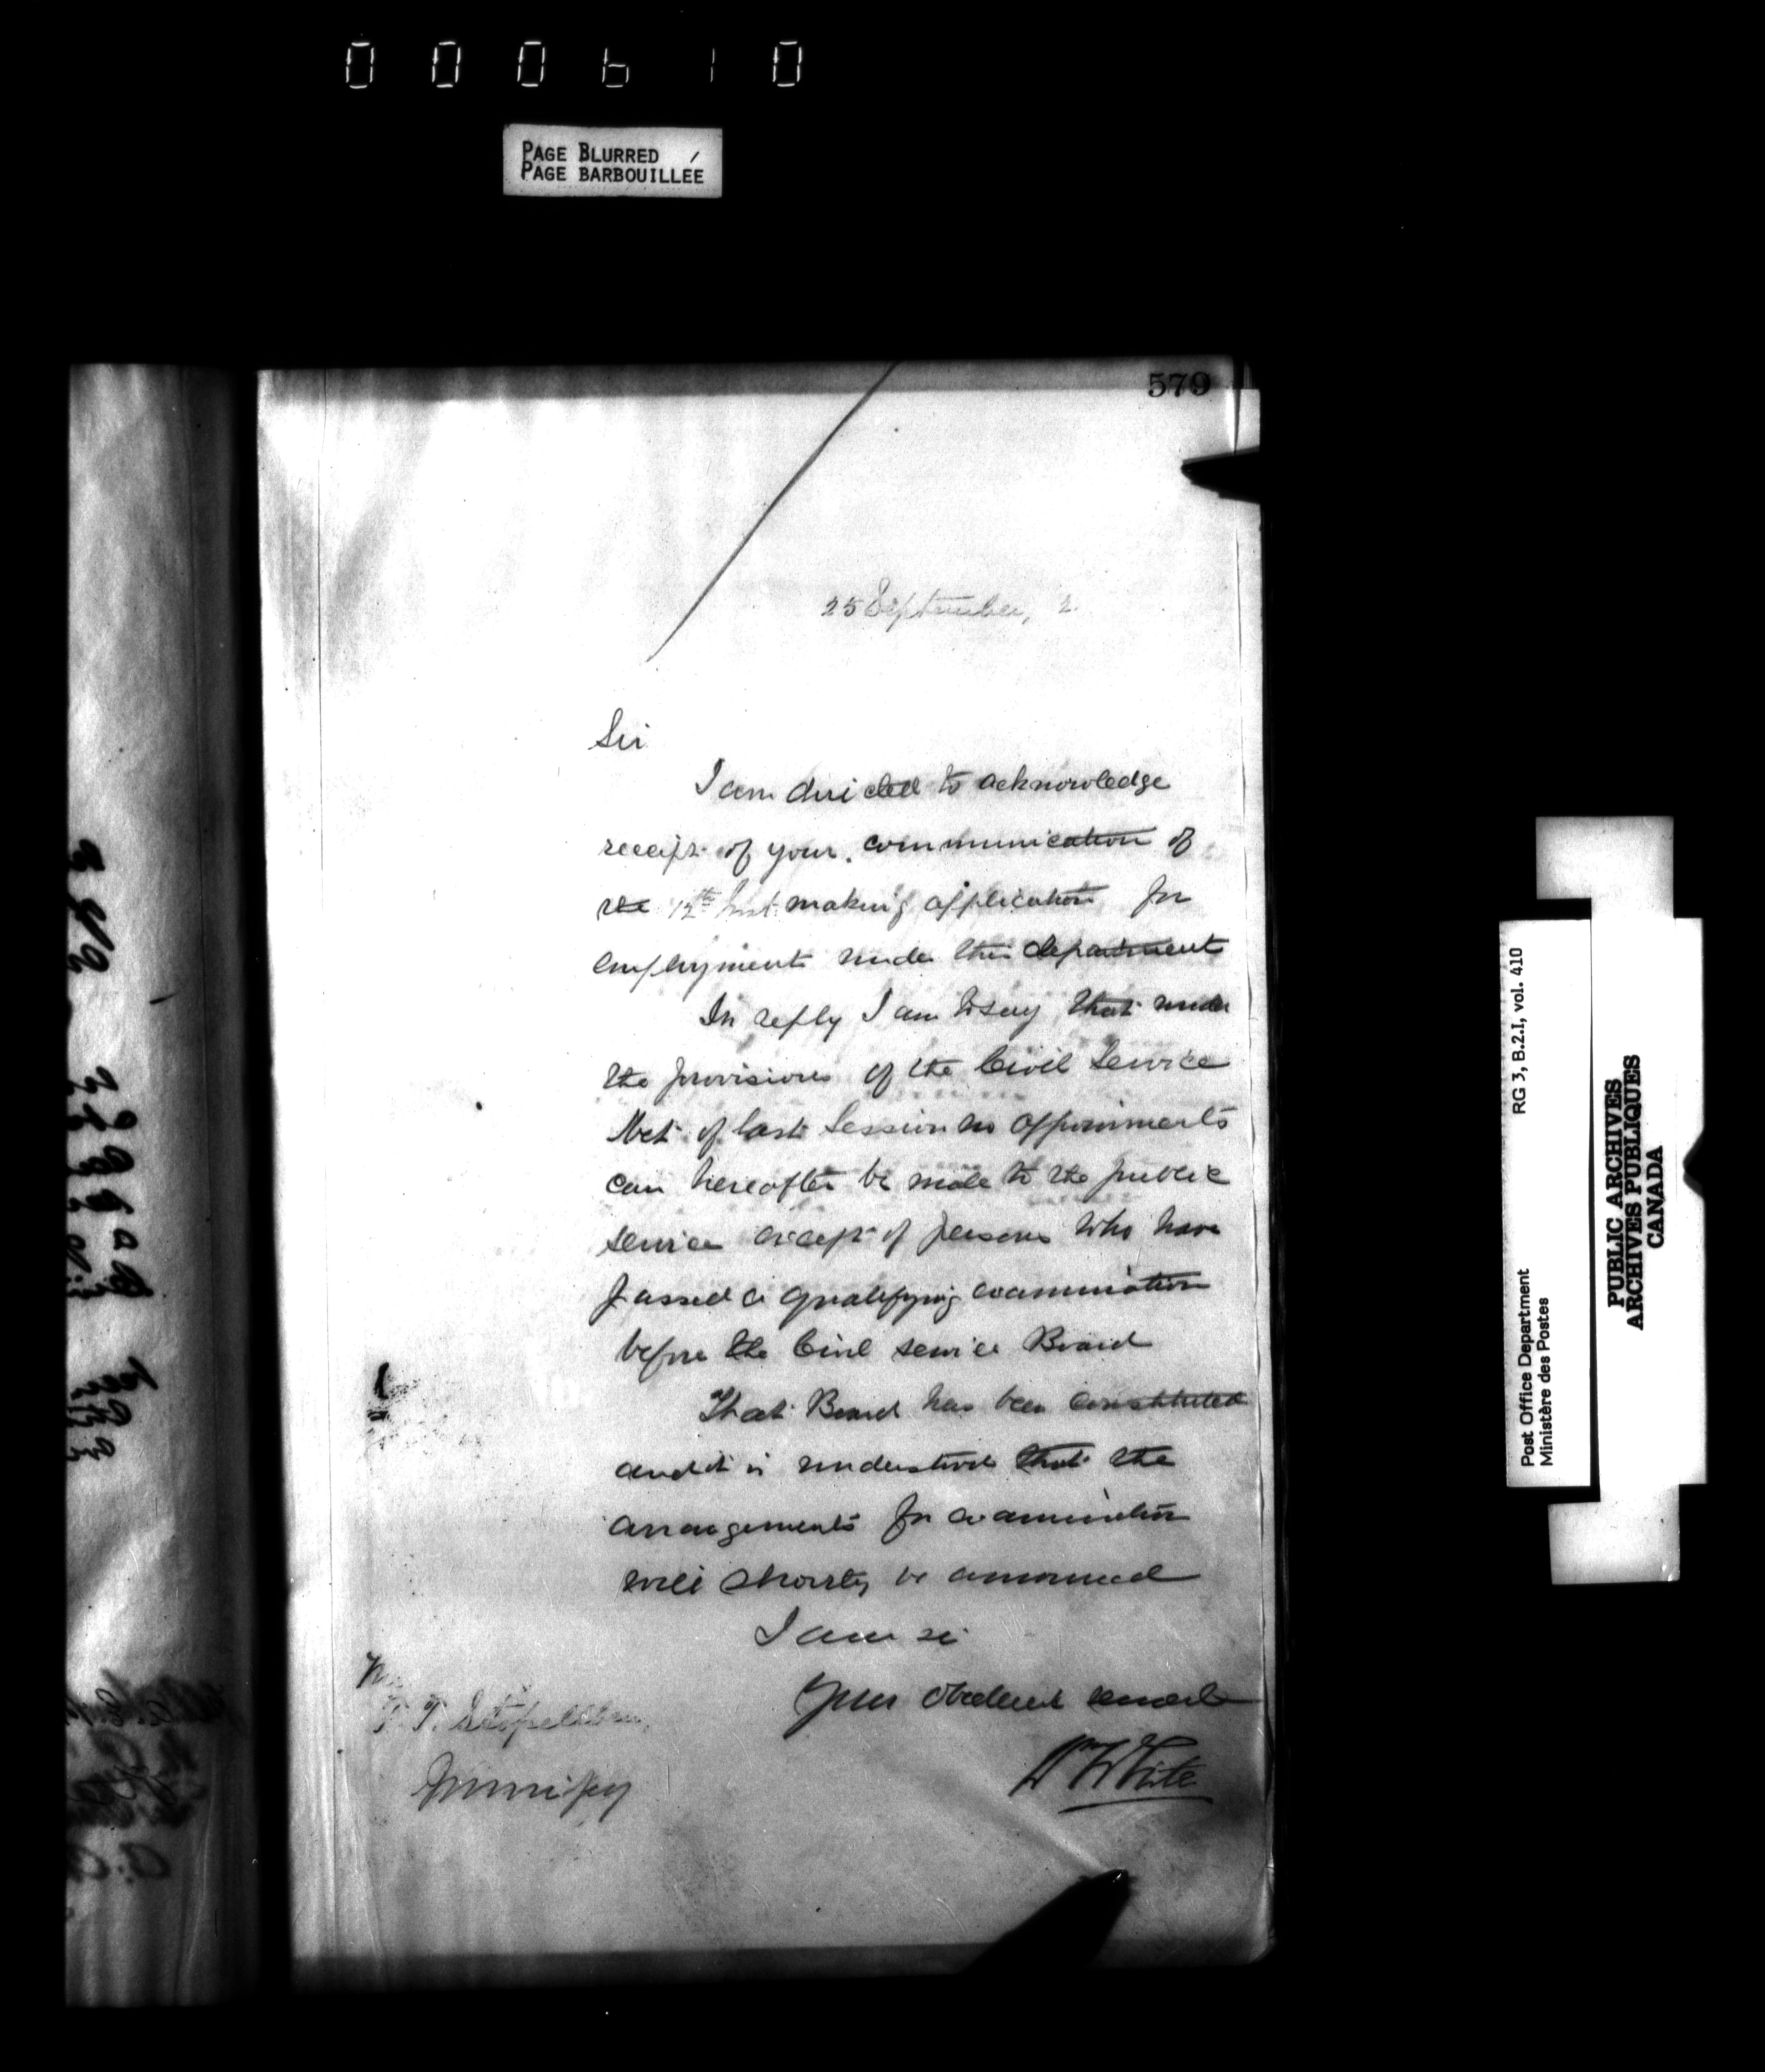 000610
PAGE BLURRED
PAGE BARBOUILLÉE
579
25 September, 2
Sir
I am directed to acknowledge
receipt of your communication of
the 12th Inst. making application for
employment under this department
In reply I am to say that under
the provisions of the Civil Service
Act of last Session no appointments
can hereafter be made to the public
service except of persons who have
passed a qualifying examination
before the Civil Service Board
That Board has been constituted
and it is understood that the
arrangements for examination
will shortly be announced
I am sir
Your obedient servant
Wm White
T.
Winnipeg
RG 3, B.2.I, vol. 410
Post Office Department
Ministère des Postes
PUBLIC ARCHIVES
ARCHIVES PUBLIQUES
CANADA